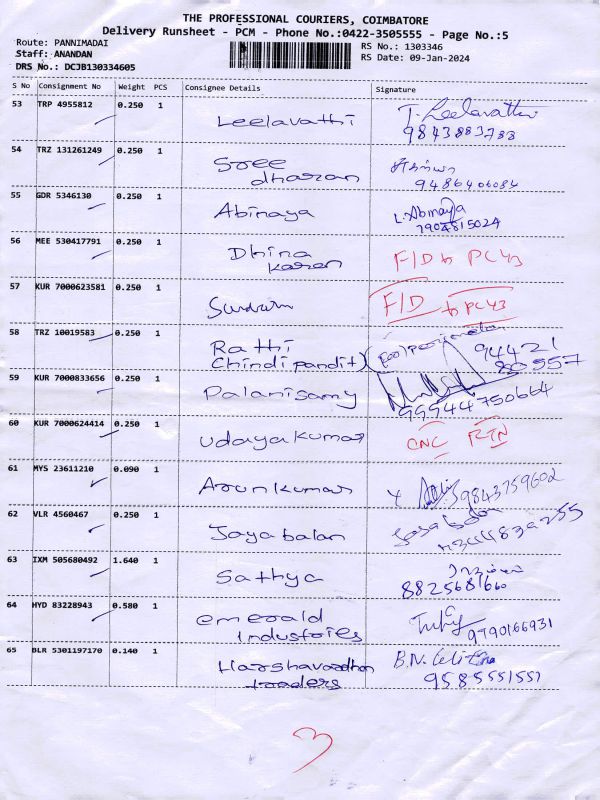 THE PROFESSIONAL COURIERS, COIMBATORE
Delivery Runsheet - PCM - Phone No.:0422-3505555 - Page No.:5
Route: PANNIMADAI
Staff: ANANDAN
DRS No.: DCJB130334605
RS No.: 1303346
RS Date: 09-Jan-2024
S No Consignment No Weight PCS Consignee Details Signature
53 TRP 4955812 0.250 1
Leelavathi T. Leelavathi
9843883788
54 TRZ 131261249 0.250 1
Sree
dharan
9486406084
55 GDR 5346130 0.250 1
Abinaya L. Abinaya
7904815024
56 MEE 530417791 0.250 1
Dhina
karan
F/D to PC43
57 KUR 7000623581 0.250 1
Sundram F/D to PC43
58 TRZ 10019583 0.250 1
Rathi
Chindipandit) 94421
80557
59 KUR 7000833656 0.250 1
Palanisamy
999444750664
60 KUR 7000624414 0.250 1
Udayakumar CNC RTN
61 MYS 23611210 0.090 1
Arunkumar 9843759602
62 VLR 4560467 0.250 1
Jayabalan
63 IXM 505680492 1.640 1
Sathya
8825681660
64 HYD 83228943 0.580 1
emerald
Industories 9790166931
65 BLR 5301197170 0.140 1
Harshavardhan B.N.
traders 9585551557
3